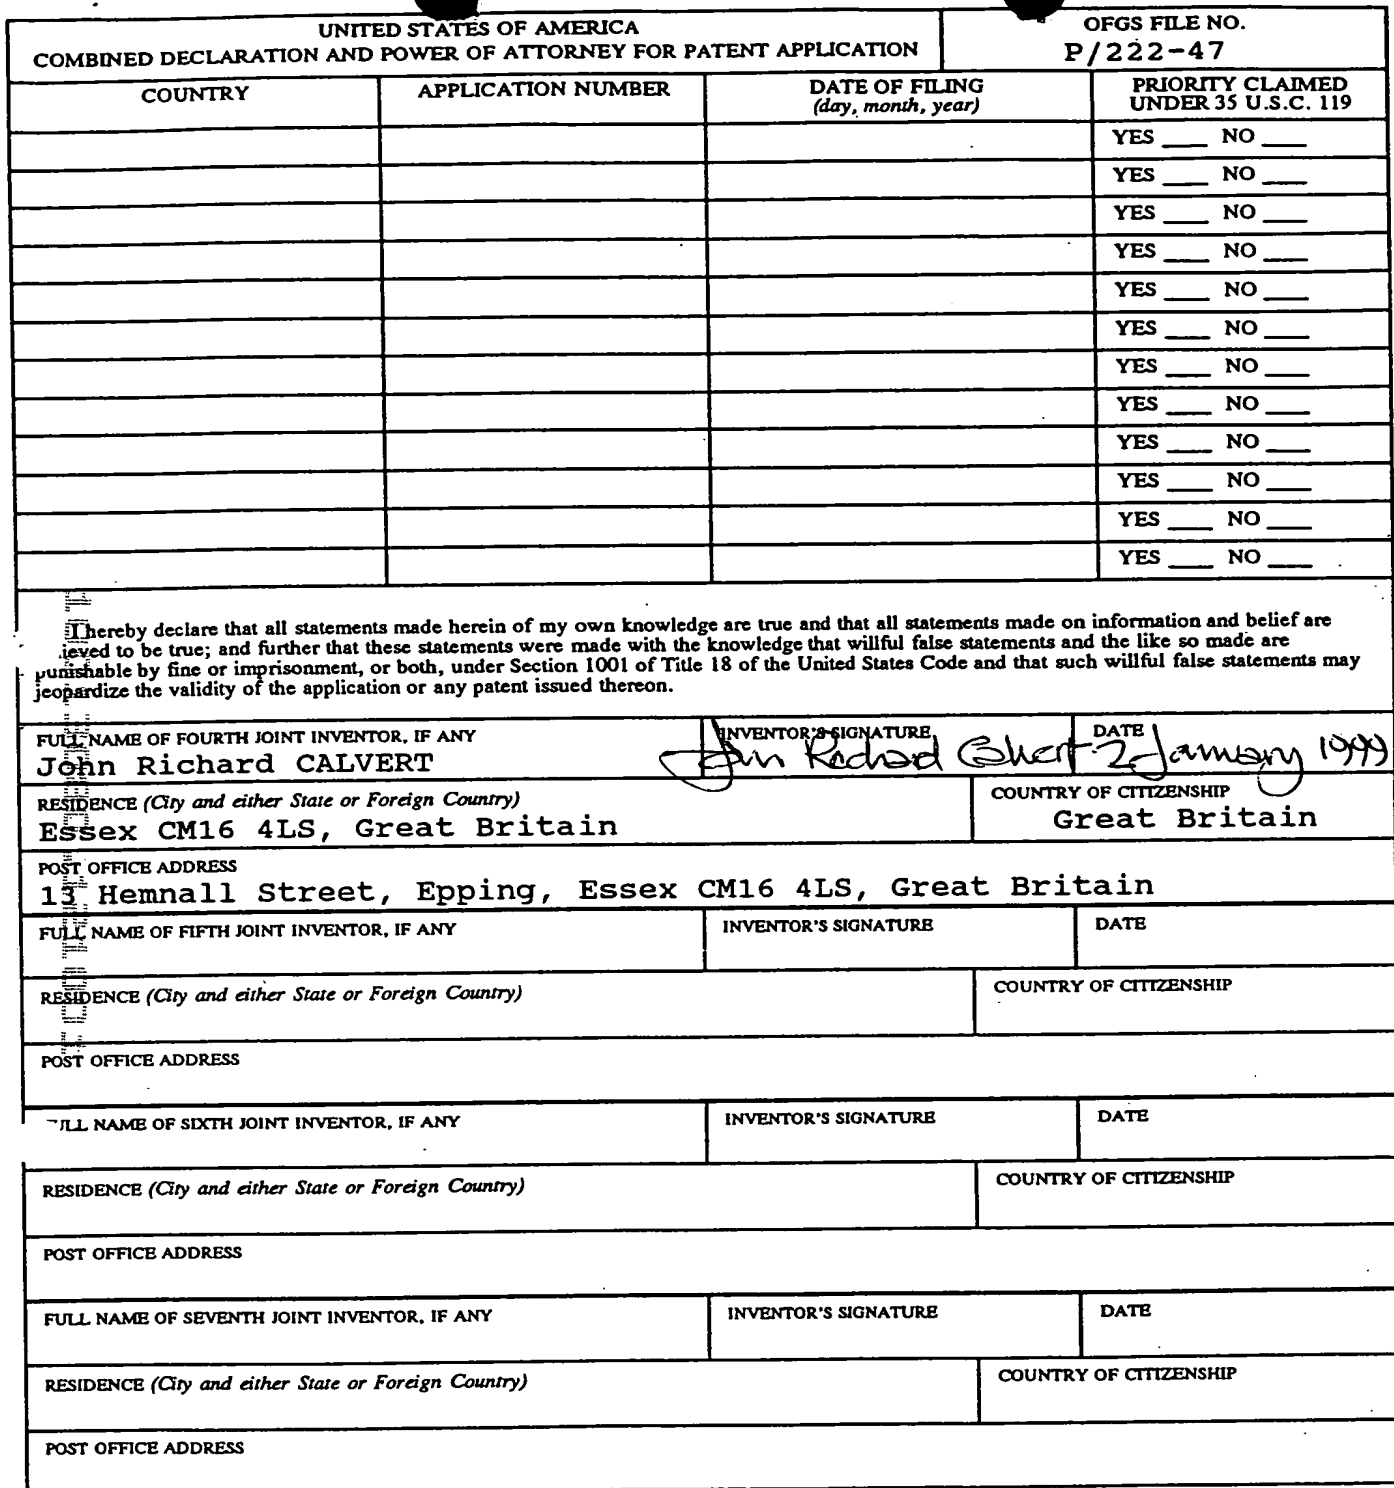 UNITED STATES OF AMERICA
COMBINED DECLARATION AND POWER OF ATTORNEY FOR PATENT APPLICATION
OFGS FILE NO.
P/222-47
COUNTRY
APPLICATION NUMBER
DATE OF FILING
(day, month, year)
PRIORITY CLAIMED
UNDER 35 U.S.C. 119
YES ___ NO ___
YES ___ NO ___
YES ___ NO ___
YES ___ NO ___
YES ___ NO ___
YES ___ NO ___
YES ___ NO ___
YES ___ NO ___
YES ___ NO ___
YES ___ NO ___
YES ___ NO ___
YES ___ NO ___
I hereby declare that all statements made herein of my own knowledge are true and that all statements made on information and belief are
ieved to be true; and further that these statements were made with the knowledge that willful false statements and the like so made are
punishable by fine or imprisonment, or both, under Section 1001 of Title 18 of the United States Code and that such willful false statements may
jeopardize the validity of the application or any patent issued thereon.
FULL NAME OF FOURTH JOINT INVENTOR, IF ANY
John Richard CALVERT
INVENTOR'S SIGNATURE
John Richard Calvert
DATE
2 January 1999
RESIDENCE (City and either State or Foreign Country)
Essex CM16 4LS, Great Britain
COUNTRY OF CITIZENSHIP
Great Britain
POST OFFICE ADDRESS
13 Hemnall Street, Epping, Essex CM16 4LS, Great Britain
FULL NAME OF FIFTH JOINT INVENTOR, IF ANY
INVENTOR'S SIGNATURE
DATE
RESIDENCE (City and either State or Foreign Country)
COUNTRY OF CITIZENSHIP
POST OFFICE ADDRESS
ULL NAME OF SIXTH JOINT INVENTOR, IF ANY
INVENTOR'S SIGNATURE
DATE
RESIDENCE (City and either State or Foreign Country)
COUNTRY OF CITIZENSHIP
POST OFFICE ADDRESS
FULL NAME OF SEVENTH JOINT INVENTOR, IF ANY
INVENTOR'S SIGNATURE
DATE
RESIDENCE (City and either State or Foreign Country)
COUNTRY OF CITIZENSHIP
POST OFFICE ADDRESS